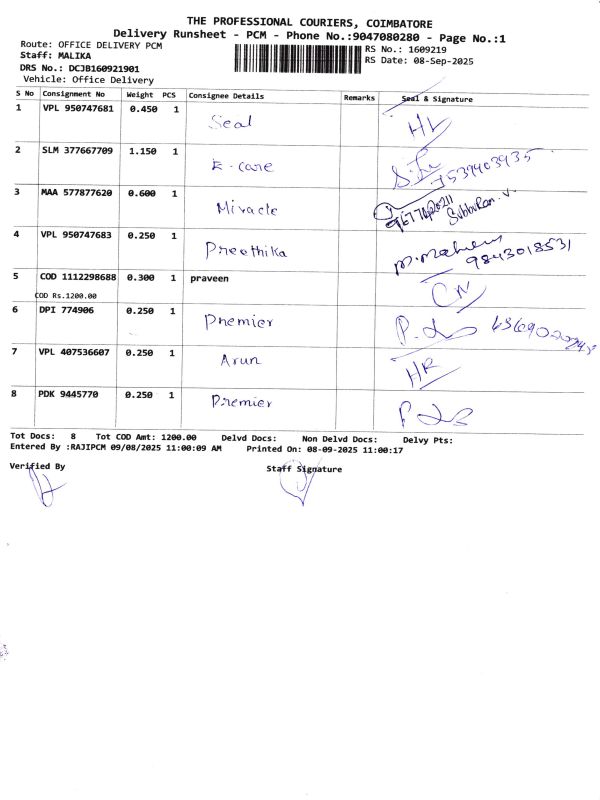 THE PROFESSIONAL COURIERS, COIMBATORE
Delivery Runsheet - PCM - Phone No.:9047080280 - Page No.:1
Route: OFFICE DELIVERY PCM
RS No.: 1609219
Staff: MALIKA
RS Date: 08-Sep-2025
DRS No.: DCJB160921901
Vehicle: Office Delivery
S No Consignment No Weight PCS Consignee Details Remarks Seal & Signature
1 VPL 950747681 0.450 1 Seal
2 SLM 377667709 1.150 1 E-care 7539403935
3 MAA 577877620 0.600 1 Miracle
4 VPL 950747683 0.250 1 Preethika 9843018531
5 COD 1112298688 0.300 1 praveen
COD Rs.1200.00
6 DPI 774906 0.250 1 Premier
7 VPL 407536607 0.250 1 Arun HR
8 PDK 9445770 0.250 1 Premier
Tot Docs: 8 Tot COD Amt: 1200.00 Delvd Docs: Non Delvd Docs: Delvy Pts:
Entered By :RAJIPCM 09/08/2025 11:00:09 AM Printed On: 08-09-2025 11:00:17
Verified By Staff Signature